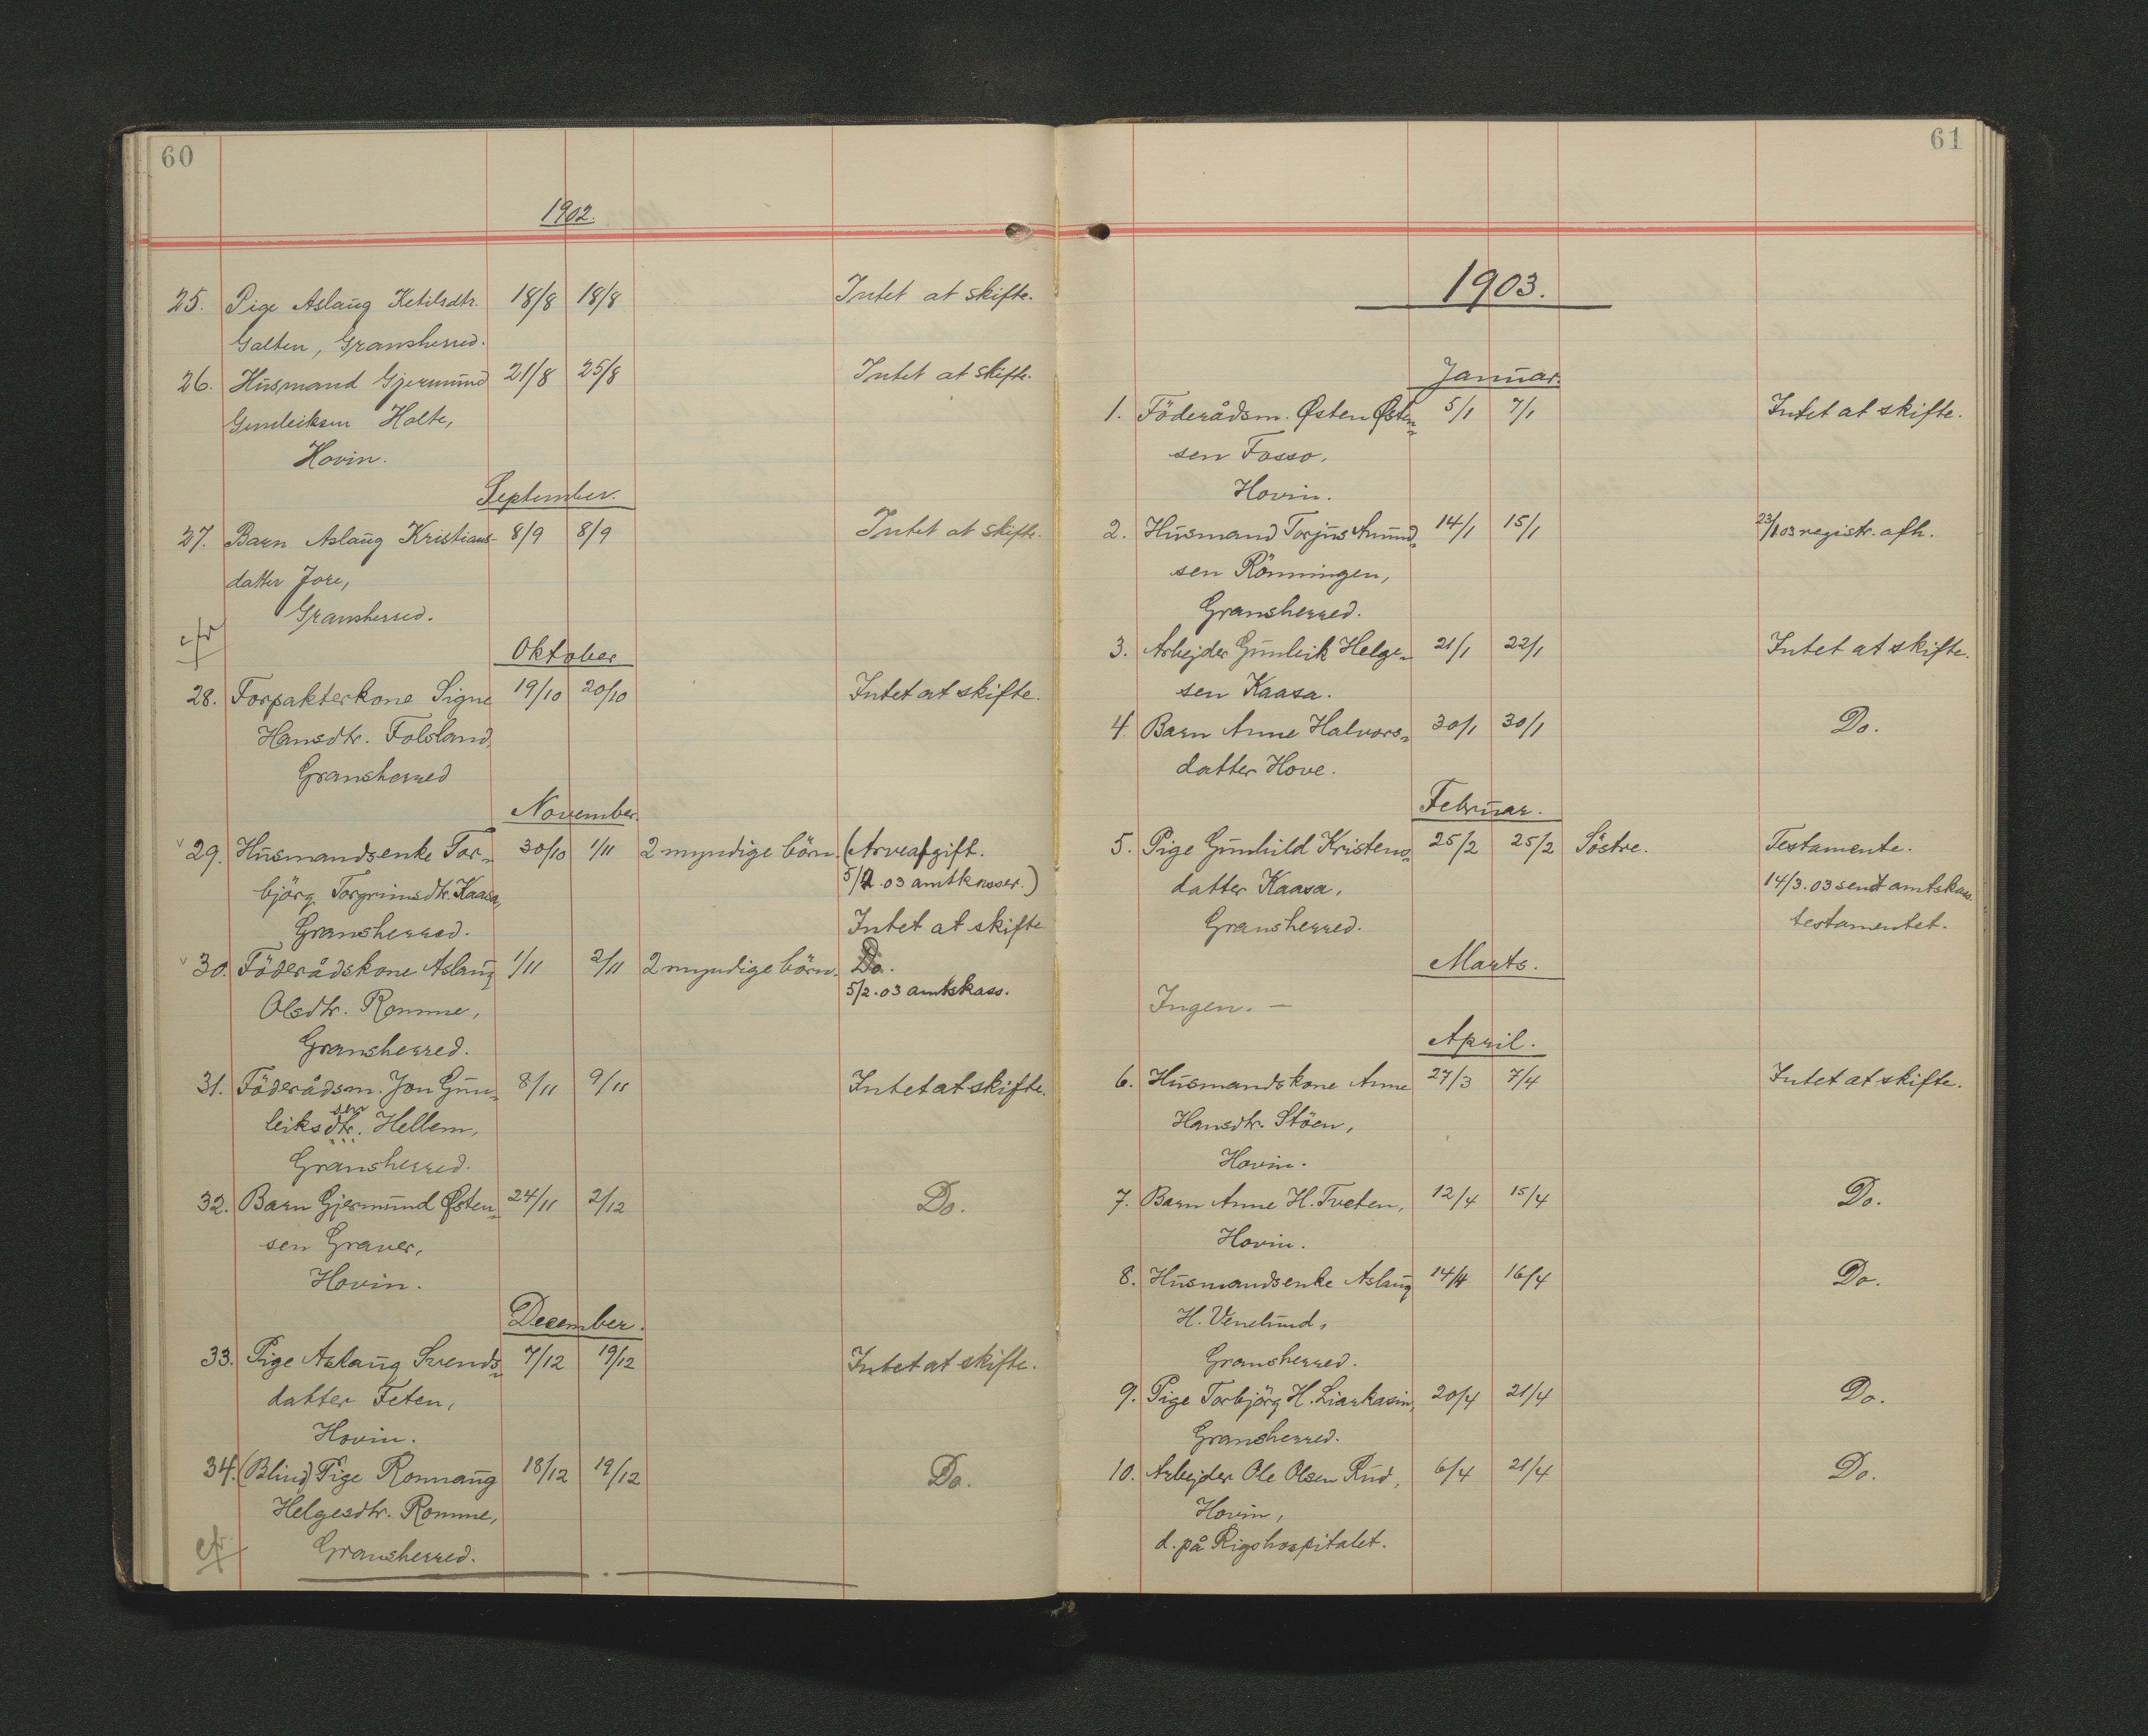 60
1902.
25. Pige Aslaug Ketilsdtr. 18/8 18/8 Intet at skifte.
Galten, Gransherred.
26. Husmand Gjermund 21/8 25/8 Intet at skifte.
Gunleiksen Holte,
Hovin.
September.
27. Barn Aslaug Kristians- 8/9 8/9 Intet at skifte.
datter Jore,
Gransherred.
cfr
Oktober
28. Forpakterkone Signe 19/10 20/10 Intet at skifte.
Hansdtr. Folsland,
Gransherred
November.
29. Husmandsenke Tor- 30/10 1/11 2 myndige börn. (Arveafgift.
björg Torgrimsdtr. Kaasa, 5/2.03 amtkasser.)
Gransherred. Intet at skifte
30. Föderådskone Aslaug 1/11 2/11 2 myndige börn. Do.
Olsdtr. Romme, 5/2.03 amtskass.
Gransherred.
31. Föderådsm. Jon Gun- 8/11 9/11 Intet at skifte.
sen
leiksdtr. Hellem,
Gransherred.
32. Barn Gjermund Østen- 24/11 2/12 Do.
sen Graver,
Hovin.
December.
33. Pige Aslaug Svends- 7/12 19/12 Intet at skifte.
datter Feten,
Hovin.
34. (Blind) Pige Ronnaug 18/12 19/12 Do.
Helgesdtr. Romme,
cfr Gransherred.
61
1903.
Januar.
1. Föderådsm. Østen Østen- 5/1 7/1 Intet at skifte.
sen Fosso,
Hovin.
2. Husmand Torjus Amund- 14/1 15/1 23/1.03 registr. afh.
sen Rönningen,
Gransherred.
3. Arbejder Gunleik Helge- 21/1 22/1 Intet at skifte.
sen Kaasa.
4. Barn Anne Halvors- 30/1 30/1 Do.
datter Hove.
Februar.
5. Pige Gunhild Kristens- 25/2 25/2 Söstre. Testamente.
datter Kaasa, 14/3.03 sendt amtskass.
Gransherred. testamentet.
Marts.
Ingen. —
April.
6. Husmandskone Anne 27/3 7/4 Intet at skifte.
Hansdtr. Stöen,
Hovin.
7. Barn Anne H. Tveten, 12/4 15/4 Do.
Hovin.
8. Husmandsenke Aslaug 14/4 16/4 Do.
H. Venelund,
Gransherred.
9. Pige Torbjörg H. Liarkasin, 20/4 21/4 Do.
Gransherred.
10. Arbejder Ole Olsen Rud, 6/4 21/4 Do.
Hovin,
d. på Rigshospitalet.